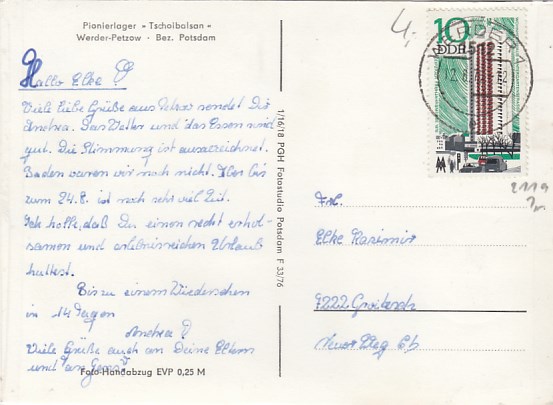 Pionierlager » Tschoibalsan «
Werder-Petzow · Bez. Potsdam
Hallo Elke!
Viele liebe Grüße aus Petzow sendet Dir
Andrea. Das Wetter und das Essen sind
gut. Die Stimmung ist ausgezeichnet.
Baden waren wir noch nicht. Aber bis
zum 24.8. ist noch sehr viel Zeit.
Ich hoffe, daß Du einen recht erhol-
samen und erlebnisreichen Urlaub
hattest.
Bis zu einem Wiedersehen
in 14 Tagen
Andrea!
Viele Grüße auch an Deine Eltern
und
Foto-Handabzug EVP 0,25 M
1/16/18 PGH Fotostudio Potsdam F 33/76
4,-
10
DDR
WERDER 1
2119
Frl.
Elke Kasimir
7222 Groitzsch